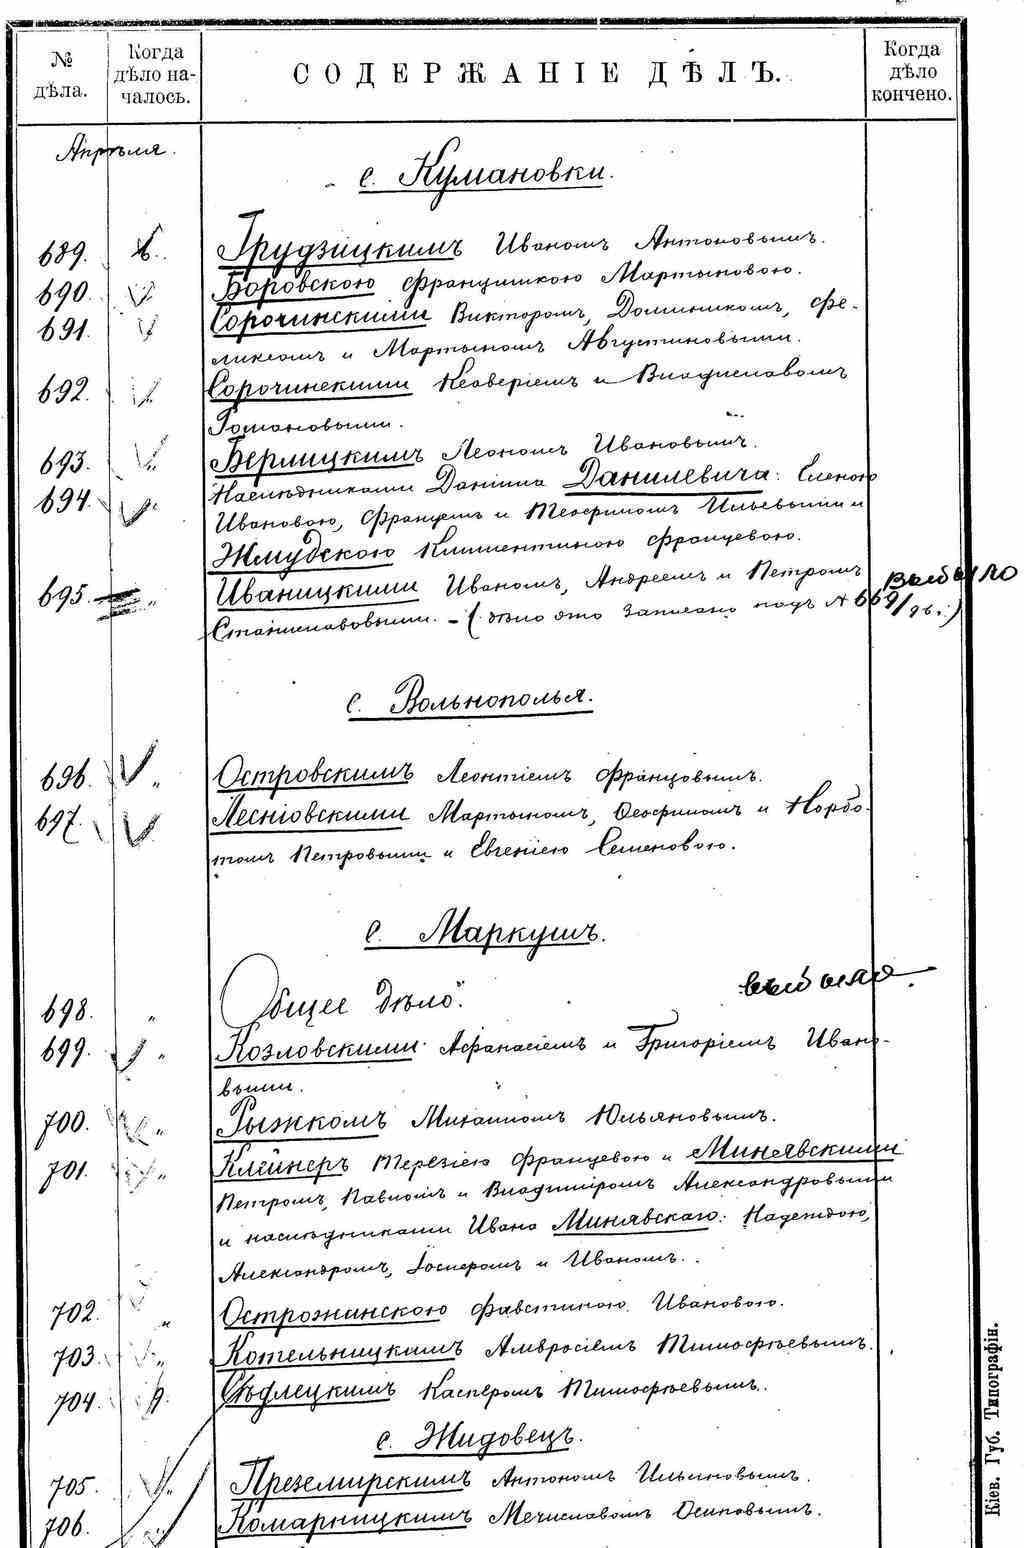 № дѣла.
Когда дѣло на-чалось.
СОДЕРЖАНІЕ ДѢЛЪ.
Когда дѣло кончено.
Апрѣля.
с. Кумановки.
689. Грудзицкимъ Иваномъ Антоновымъ.
690. Боровскою Францишкою Мартыновою.
691. Сорочинскими Викторомъ, Доминикомъ, Фе-
ликсомъ и Мартыномъ Августиновыми.
692. Сорочинскими Ксаверіемъ и Владиславомъ
Романовыми.
693. Берлицкимъ Леономъ Ивановымъ.
694. Наслѣдниками Даніила Данилевича: Еленою
Ивановою, Францемъ и Теофиломъ Ильевыми и
Жмудскою Климентиною Францевою.
695. Иваницкими Иваномъ, Андреемъ и Петромъ выбыло
Станиславовыми. – (дѣло это записано подъ № 669/дѣ.)
с. Вольнополья.
696. " Островскимъ Леонтіемъ Францовымъ.
697. " Лесніовскими Мартыномъ, Ѳеофиломъ и Норбо-
томъ Петровыми и Евгеніею Семеновою.
с. Маркушъ.
698. " Общее дѣло". выбыло
699. " Козловскими Афанасіемъ и Григоріемъ Ивано-
выми.
700. " Рыжкомъ Михаиломъ Юльяновымъ.
701. " Клейнеръ Терезіею Францевою и Минявскими
Петромъ, Павломъ и Владиміромъ Александровыми
и наслѣдниками Ивана Минявскаго: Надеждою,
Александромъ, Іосифомъ и Иваномъ.
702. " Острожинскою Фавстиною Ивановою.
703. " Котельницкимъ Амвросіемъ Тимофѣевымъ.
704. Сѣдлецкимъ Касперомъ Тимофѣевымъ.
с. Жидовецъ.
705. " Преземирскимъ Антономъ Ильиновымъ.
706. " Комарницкимъ Мечиславомъ Осиповымъ.
Кіев. Губ. Типографіи.